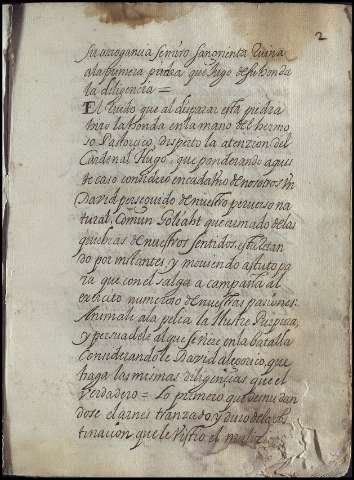 2
su arrogancia se miro sangrienta Ruina
a la primera piedra que hizo de su honda
la diligencia =
El Ruido que al disparar esta piedra
hizo la honda en la mano del hermo
so Pastorsico, desperto la atenzion del
Cardenal Hugo, que ponderando aques
te caso considero en cada Uno de nosotros Un
David perseguido de nuestro perverso na
tural, Comun Goliaht que armado de las
quiebras de nuestros sentidos, esta
do por instantes, y moviendo astuto pa
ra que con el salga a campaña al
exercito numeroso de nuestras pasiones.
Anima le a la pelea la Ilustre Purpura,
y persuadele al que se viere en la batalla
Considerandole David alegorico, que
haga las mismas diligencias que el
Verdadero = Lo primero que desnudan
dose el arnes tranzado y duro de la obs
tinacion que le Vistio el